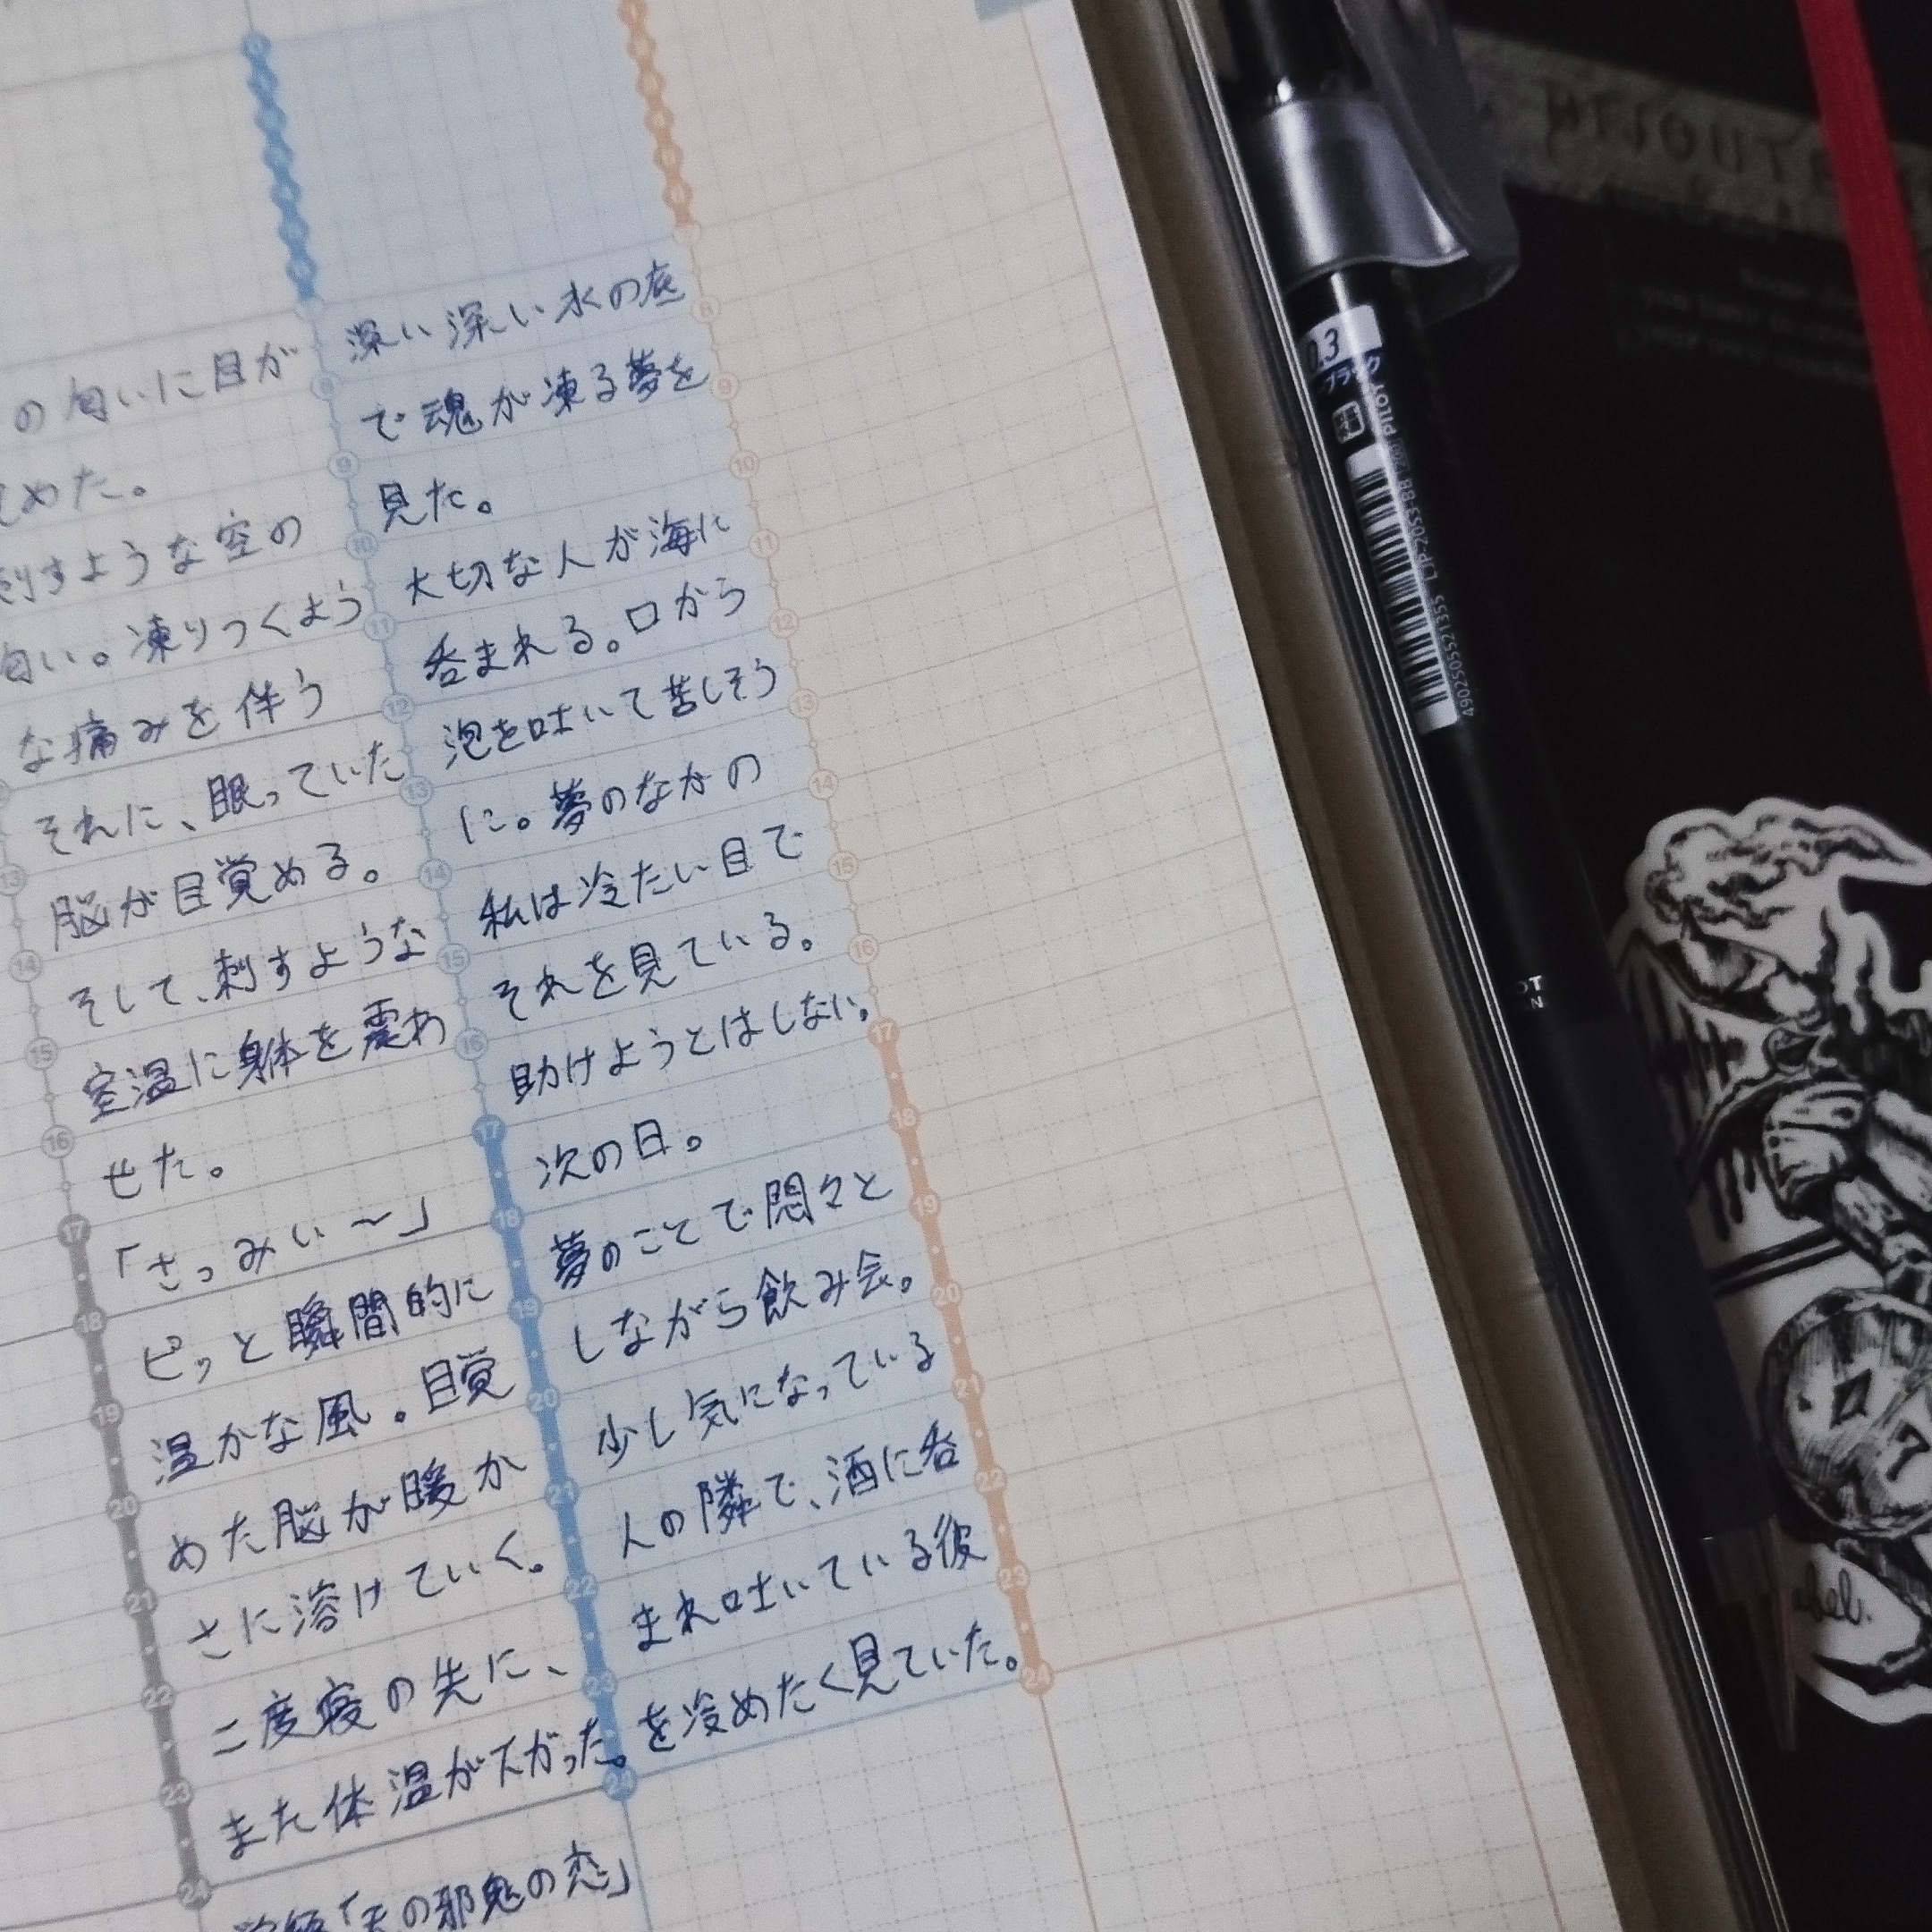 の匂いに目が
めた。
刺すような空の
匂い。凍りつくよう
な痛みを伴う
それに、眠っていた
脳が目覚める。
そして、刺すような
室温に身体を震わ
せた。
「さっみぃ〜」
ピッと瞬間的に
温かな風。目覚
めた脳が暖か
さに溶けていく。
二度寝の先に、
また体温が下がった。
「天の邪鬼の恋」
深い深い水の底
で魂が凍る夢を
見た。
大切な人が海に
呑まれる。口から
泡を吐いて苦しそう
に。夢のなかの
私は冷たい目で
それを見ている。
助けようとはしない。
次の日。
夢のことで悶々と
しながら飲み会。
少し気になっている
人の隣で、酒に呑
まれ吐いている彼
を冷めたく見ていた。
8
9
10
11
12
13
14
15
16
17
18
19
20
21
22
23
24
0.3
PILOT
4902505521355